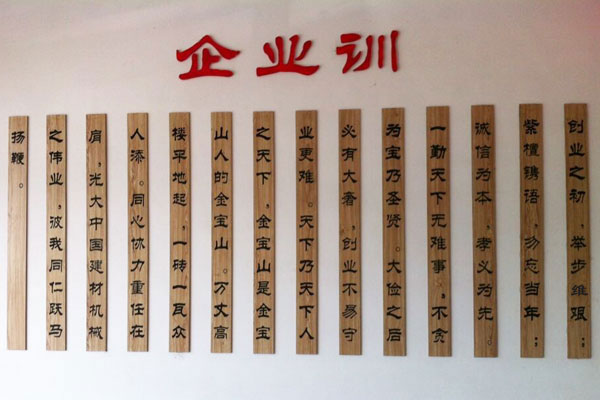 企业训
创业之初，举步维艰：
紫檀镌语，勿忘当年：
诚信为本，孝义为先。
一勤天下无难事，不贪
为宝乃圣贤。大俭之后
必有大奢，创业不易守
业更难。天下乃天下人
之天下，金宝山是金宝
山人的金宝山。万丈高
楼平地起，一砖一瓦众
人添。同心协力重任在
肩，光大中国建材机械
之伟业，彼我同仁跃马
扬鞭。